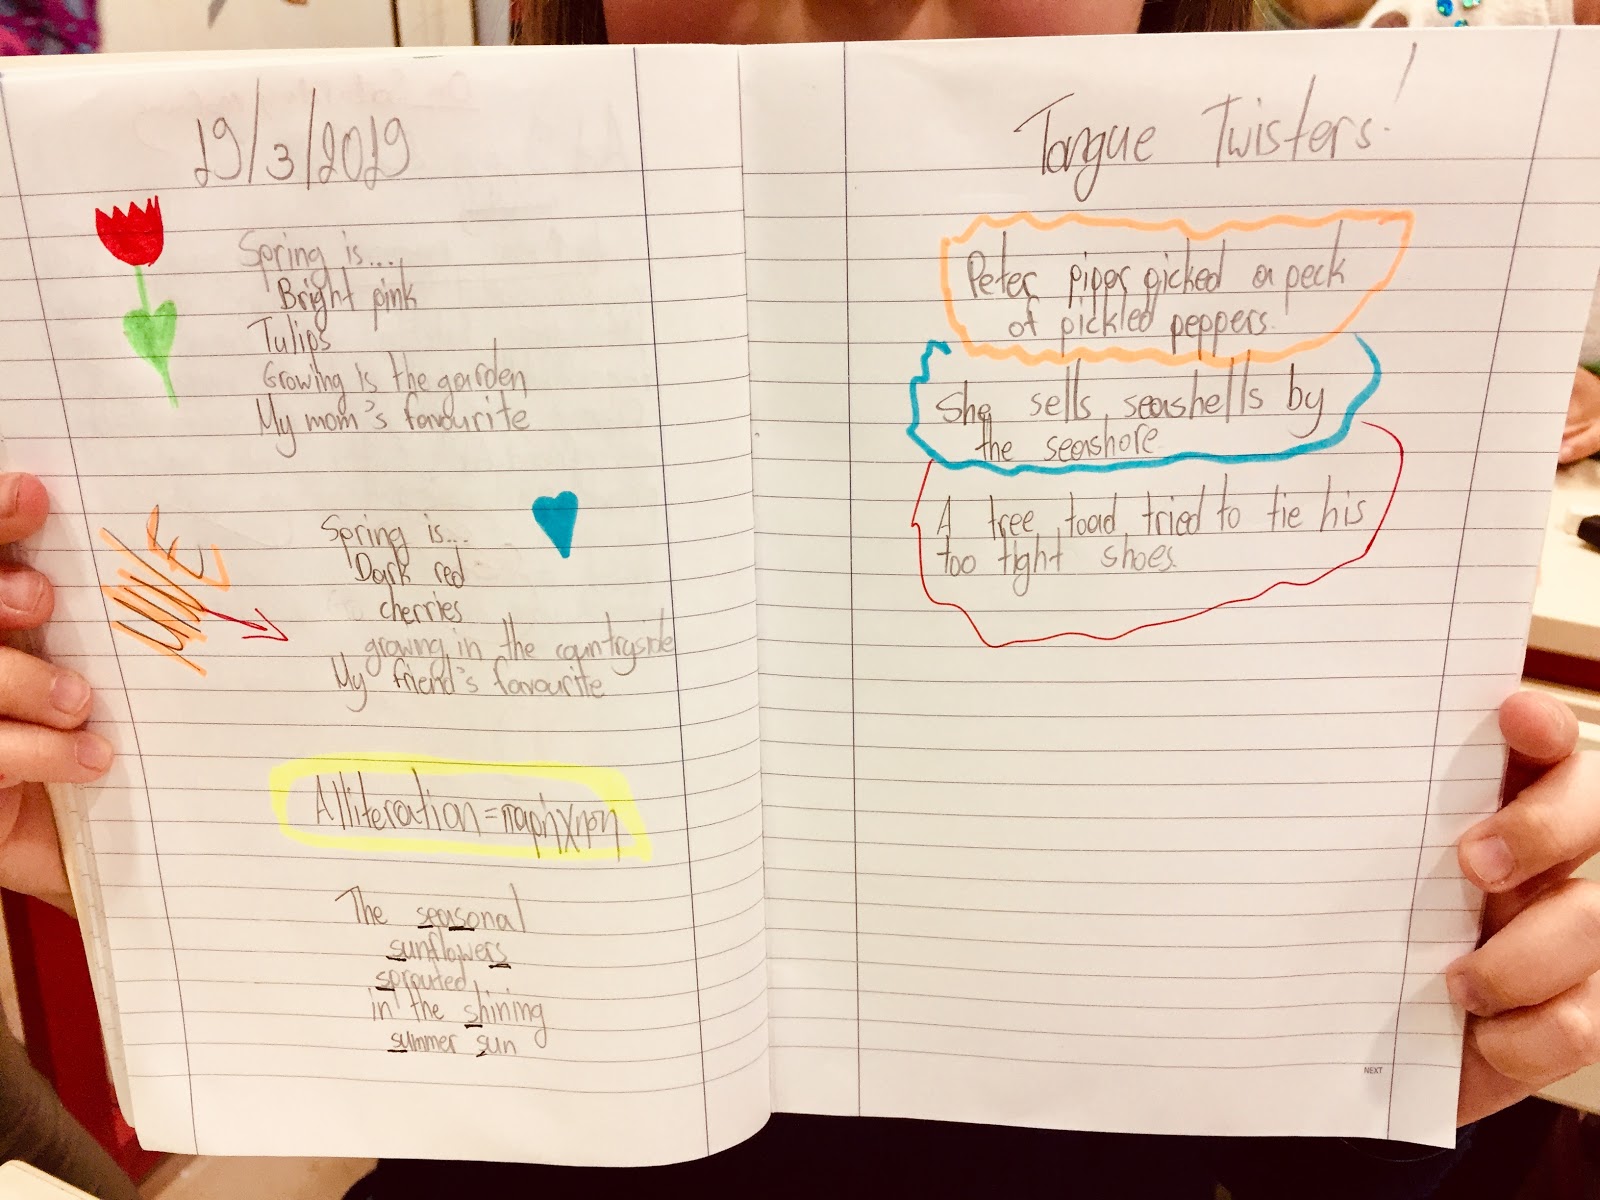 19/3/2019
Spring is....
Bright pink
Tulips
Growing is the garden
My mom's favourite
MINE
Spring is...
Dark red
cherries
growing in the countryside
My friend's favourite
Alliteration=παρήχηση
The seasonal
sunflowers
sprouted
in the shining
summer sun
Tongue Twisters!
Peter piper picked a peck
of pickled peppers.
She sells seashells by
the seashore.
A tree toad tried to tie his
too tight shoes.
NEXT